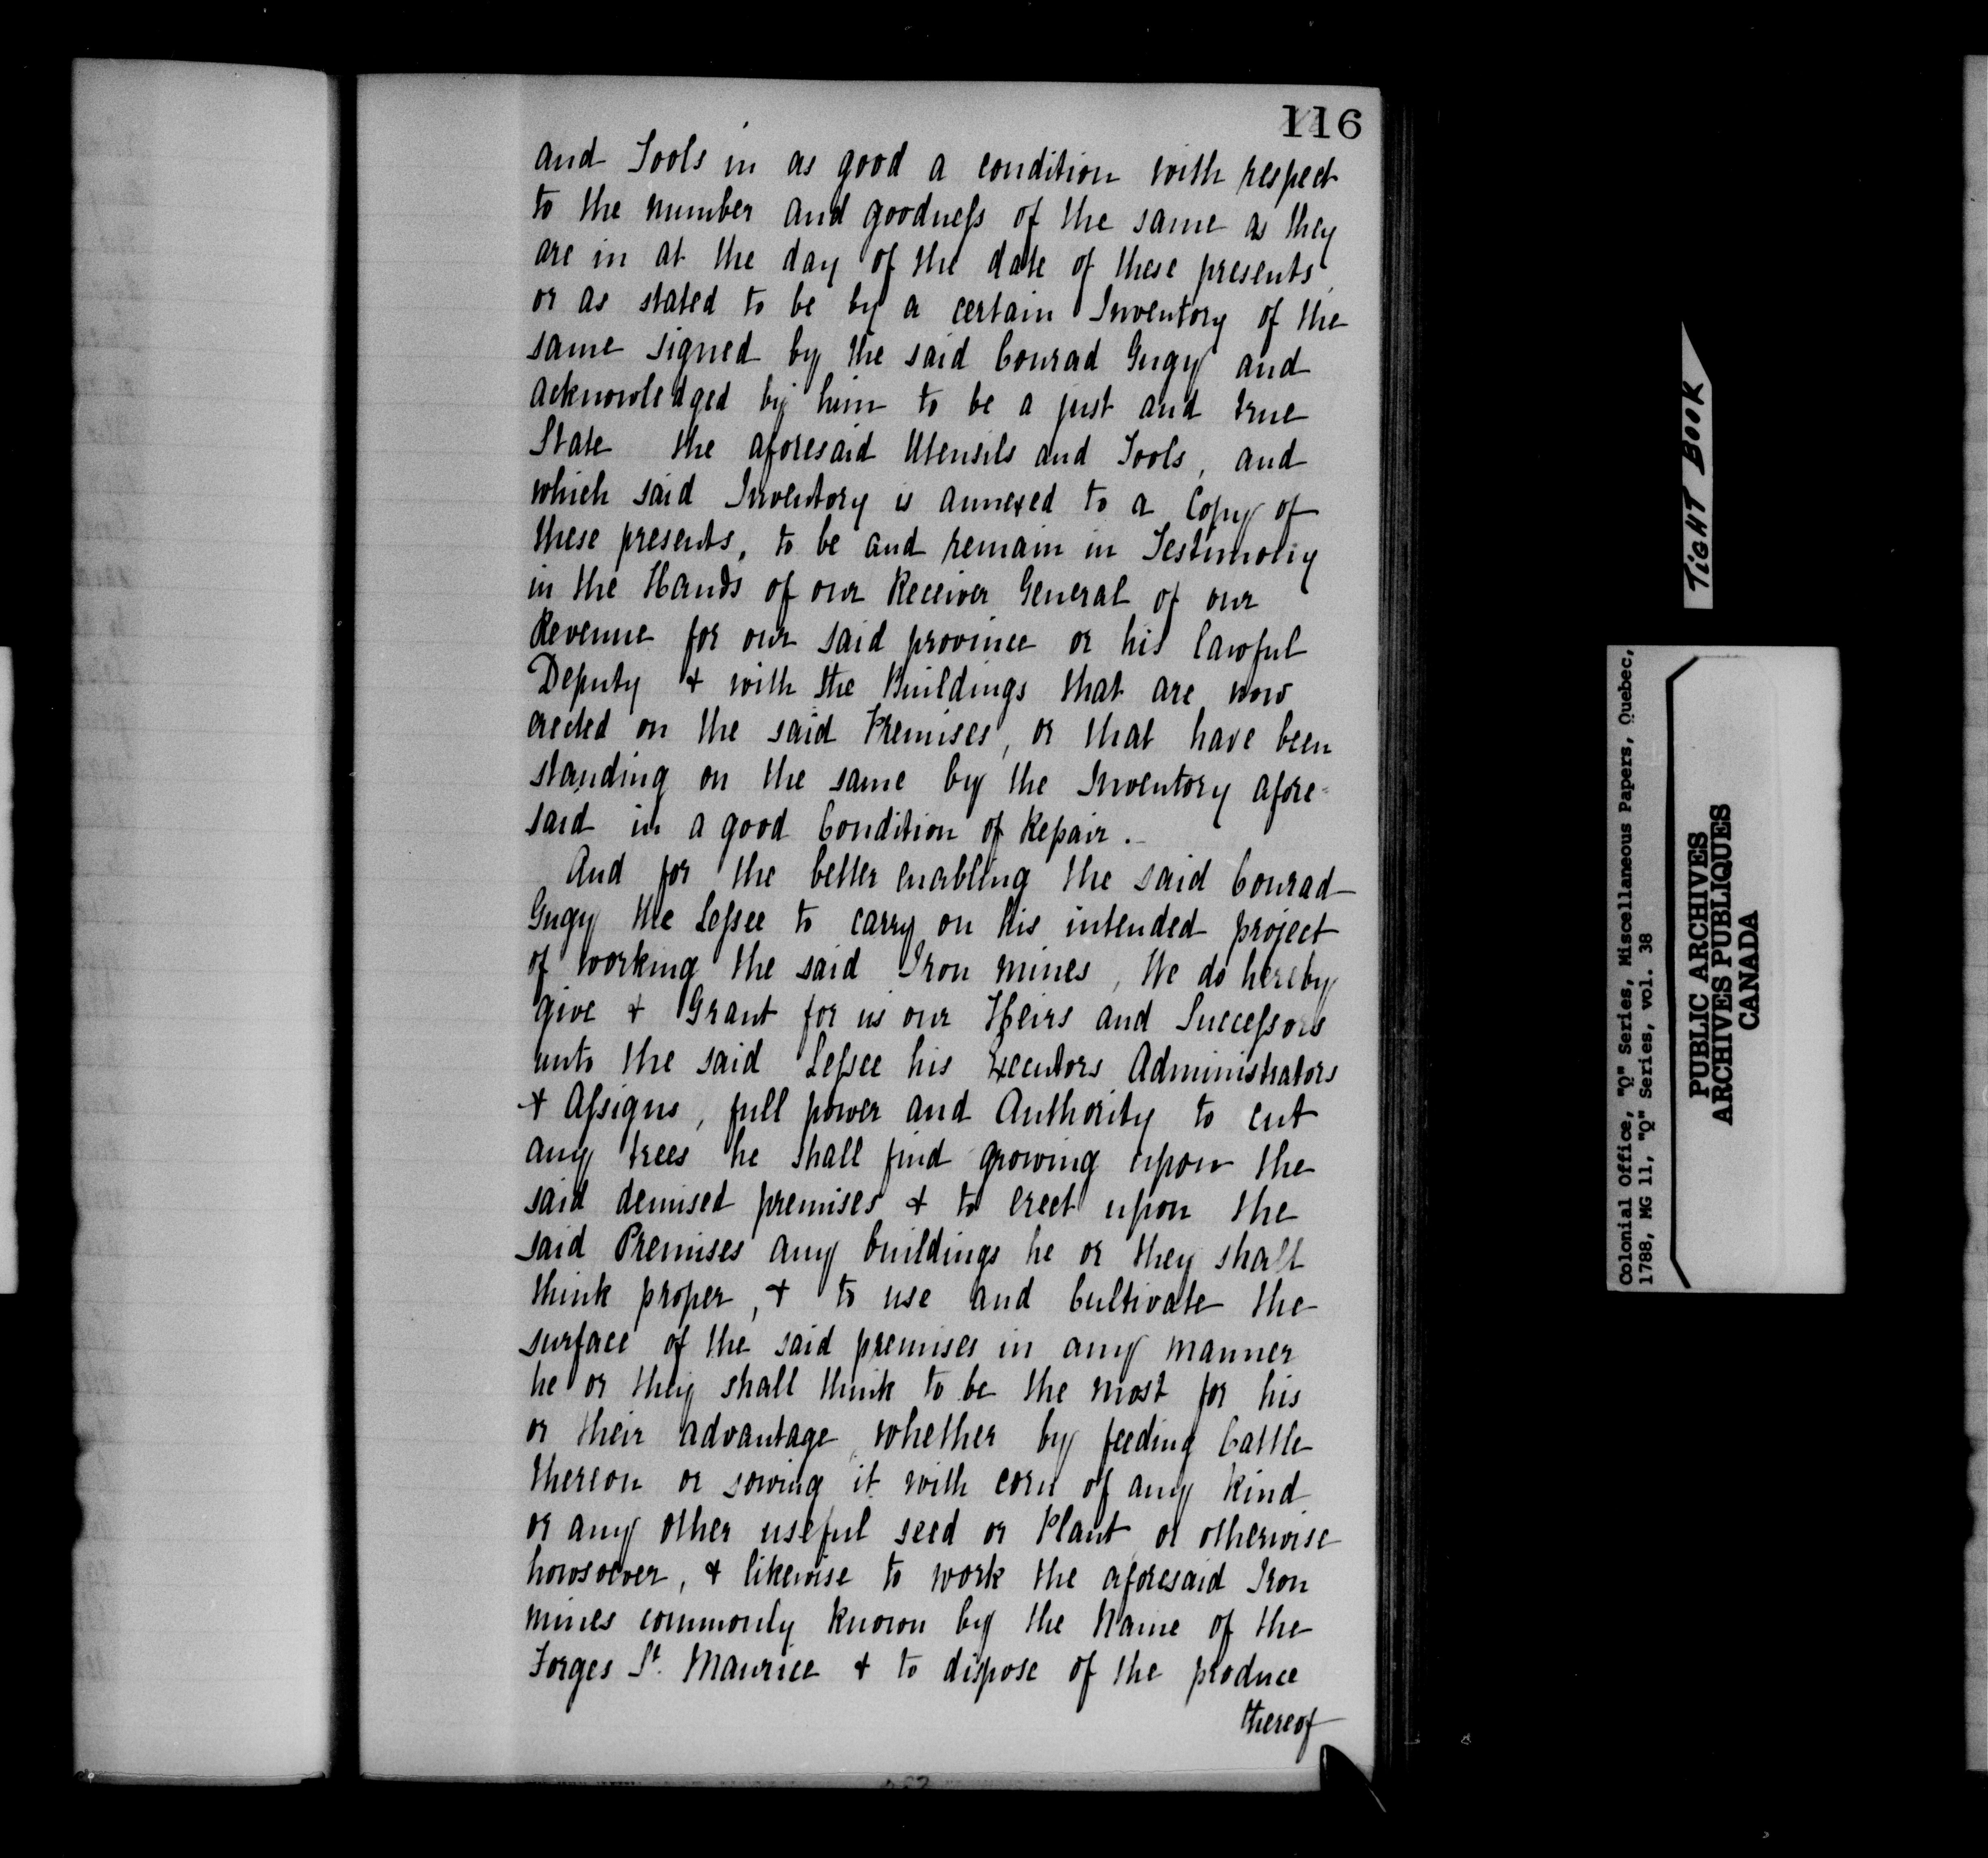 116
and Tools in as good a condition with respect
to the number and goodneſs of the same as they
are in at the day of the date of these presents,
or as stated to be by a certain Inventory of the
same signed by the said Conrad Gugy and
acknowledged by him to be a just and true
State the aforesaid Utensils and Tools, and
which said Inventory is annexed to a Copy of
these presents, to be and remain in Testimony
in the Hands of our Receiver General of our
Revenue for our said province or his lawful
Deputy & with the Buildings that are now
erected on the said Premises, or that have been
standing on the same by the Inventory afore-
said in a good Condition of Repair.-
And for the better enabling the said Conrad
Gugy the Leſsee to carry on his intended project
of working the said Iron mines, We do hereby
give & Grant for us our Heirs and Succeſsors
unto the said Leſsee his Executors Administrators
& Aſsigns, full power and Authority to cut
any trees he shall find growing upon the
said demised premises & to erect upon the
said Premises any buildings he or they shall
think proper, & to use and Cultivate the
surface of the said premises in any manner
he or they shall think to be the most for his
or their advantage, whether by feeding Cattle
thereon or sowing it with corn of any kind
or any other useful seed or Plant or otherwise
howsoever, & likewise to work the aforesaid Iron
mines commonly known by the Name of the
Forges St. Maurice & to dispose of the produce
thereof
TIGHT BOOK
Colonial Office, "Q" Series, Miscellaneous Papers, Quebec,
1788, MG 11, "Q" Series, vol. 38
PUBLIC ARCHIVES
ARCHIVES PUBLIQUES
CANADA